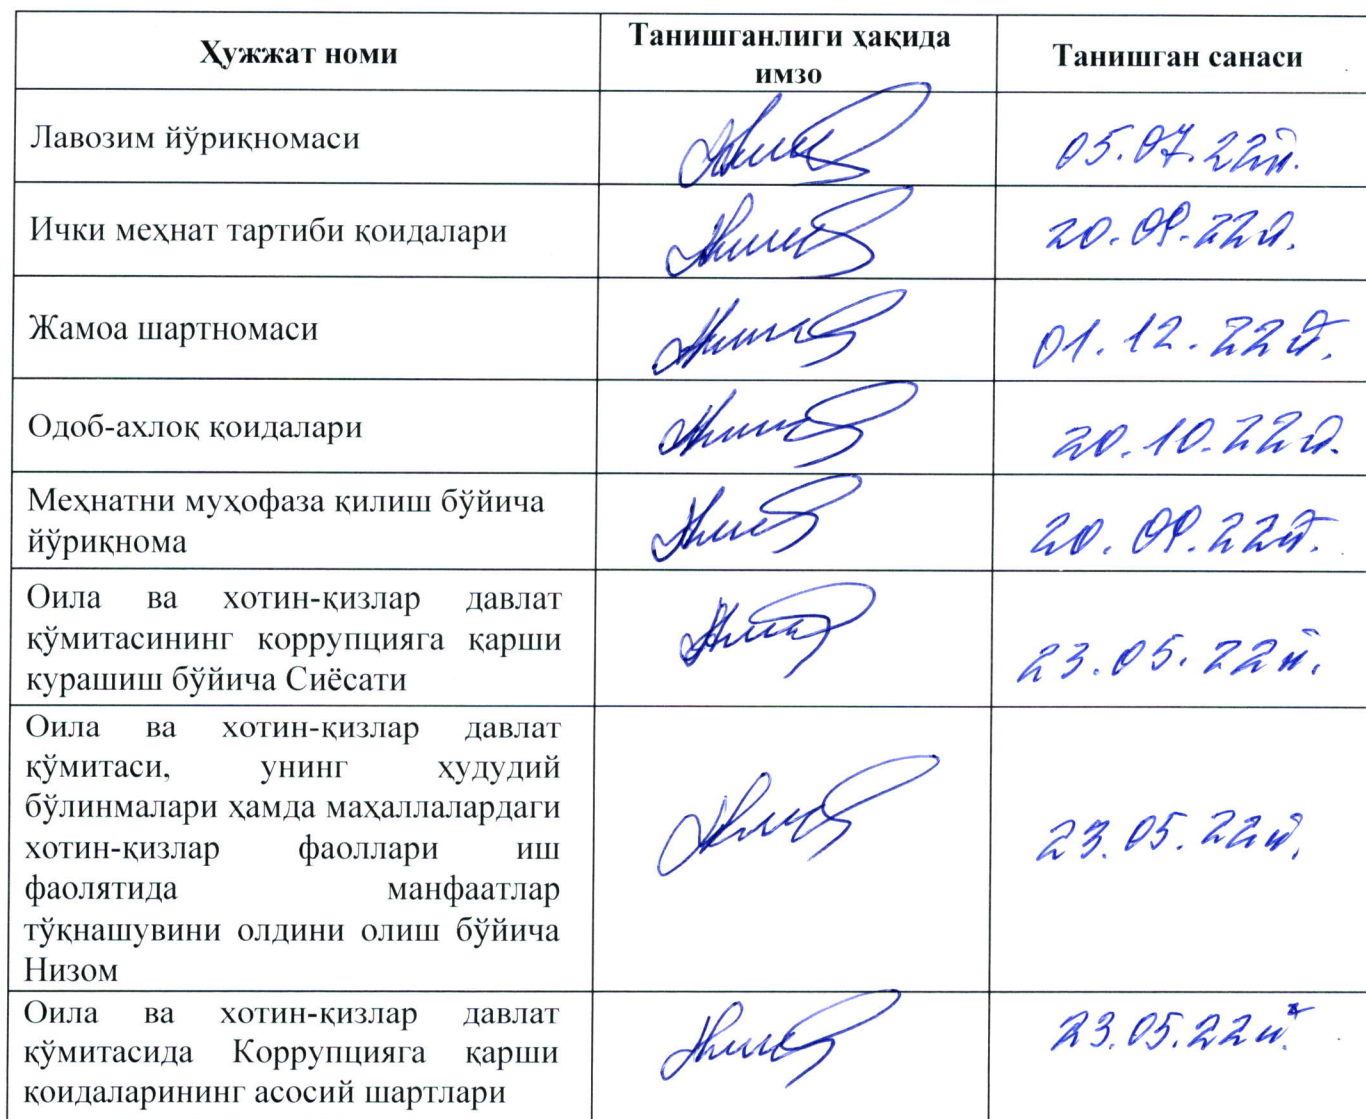 Ҳужжат номи
Танишганлиги ҳақида
имзо
Танишган санаси
Лавозим йўриқномаси
05.07.22й.
Ички меҳнат тартиби қоидалари
20.09.22й.
Жамоа шартномаси
01.12.22й.
Одоб-ахлоқ қоидалари
20.10.22й.
Меҳнатни муҳофаза қилиш бўйича
йўриқнома
20.09.22й.
Оила ва хотин-қизлар давлат
қўмитасининг коррупцияга қарши
курашиш бўйича Сиёсати
23.05.22й.
Оила ва хотин-қизлар давлат
қўмитаси, унинг ҳудудий
бўлинмалари ҳамда маҳаллалардаги
хотин-қизлар фаоллари иш
фаолятида манфаатлар
тўқнашувини олдини олиш бўйича
Низом
23.05.22й.
Оила ва хотин-қизлар давлат
қўмитасида Коррупцияга қарши
қоидаларининг асосий шартлари
23.05.22й.